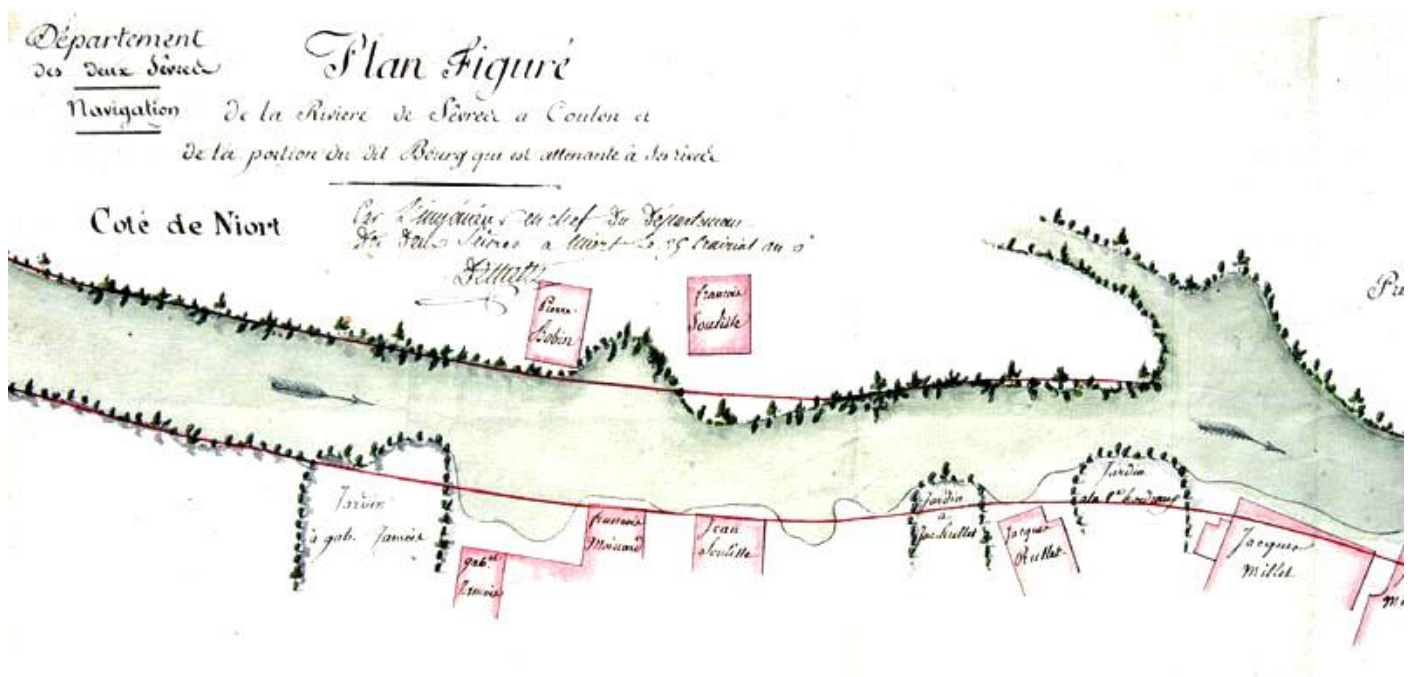 Département
des deux Sèvres
Navigation
Plan Figuré
de la Riviere de Sèvres a Coulon et
de la portion du dit Bourg qui est attenante à ses rives
Coté de Niort
Par L'ingénieur en chef du Département
Des Deux Sèvres a Niort le 25 Prairial an
Pierre
Bobin
francois
Soulisse
Jardin
à gab.
gab.el
francois
Moinard
Jean
Soulisse
Jardin
a
Jacques
Rullet
Jardin
Jacques
Millet